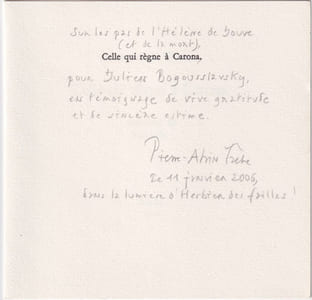 Sur les pas de l'Hélène de Jouve
(et de la mort),
Celle qui règne à Carona,
pour Julien Bogousslavsky,
en témoignage de vive gratitude
et de sincère estime.
Pierre-Alain Tâche
Le 11 janvier 2006,
dans la lumière d'Herbier des failles !